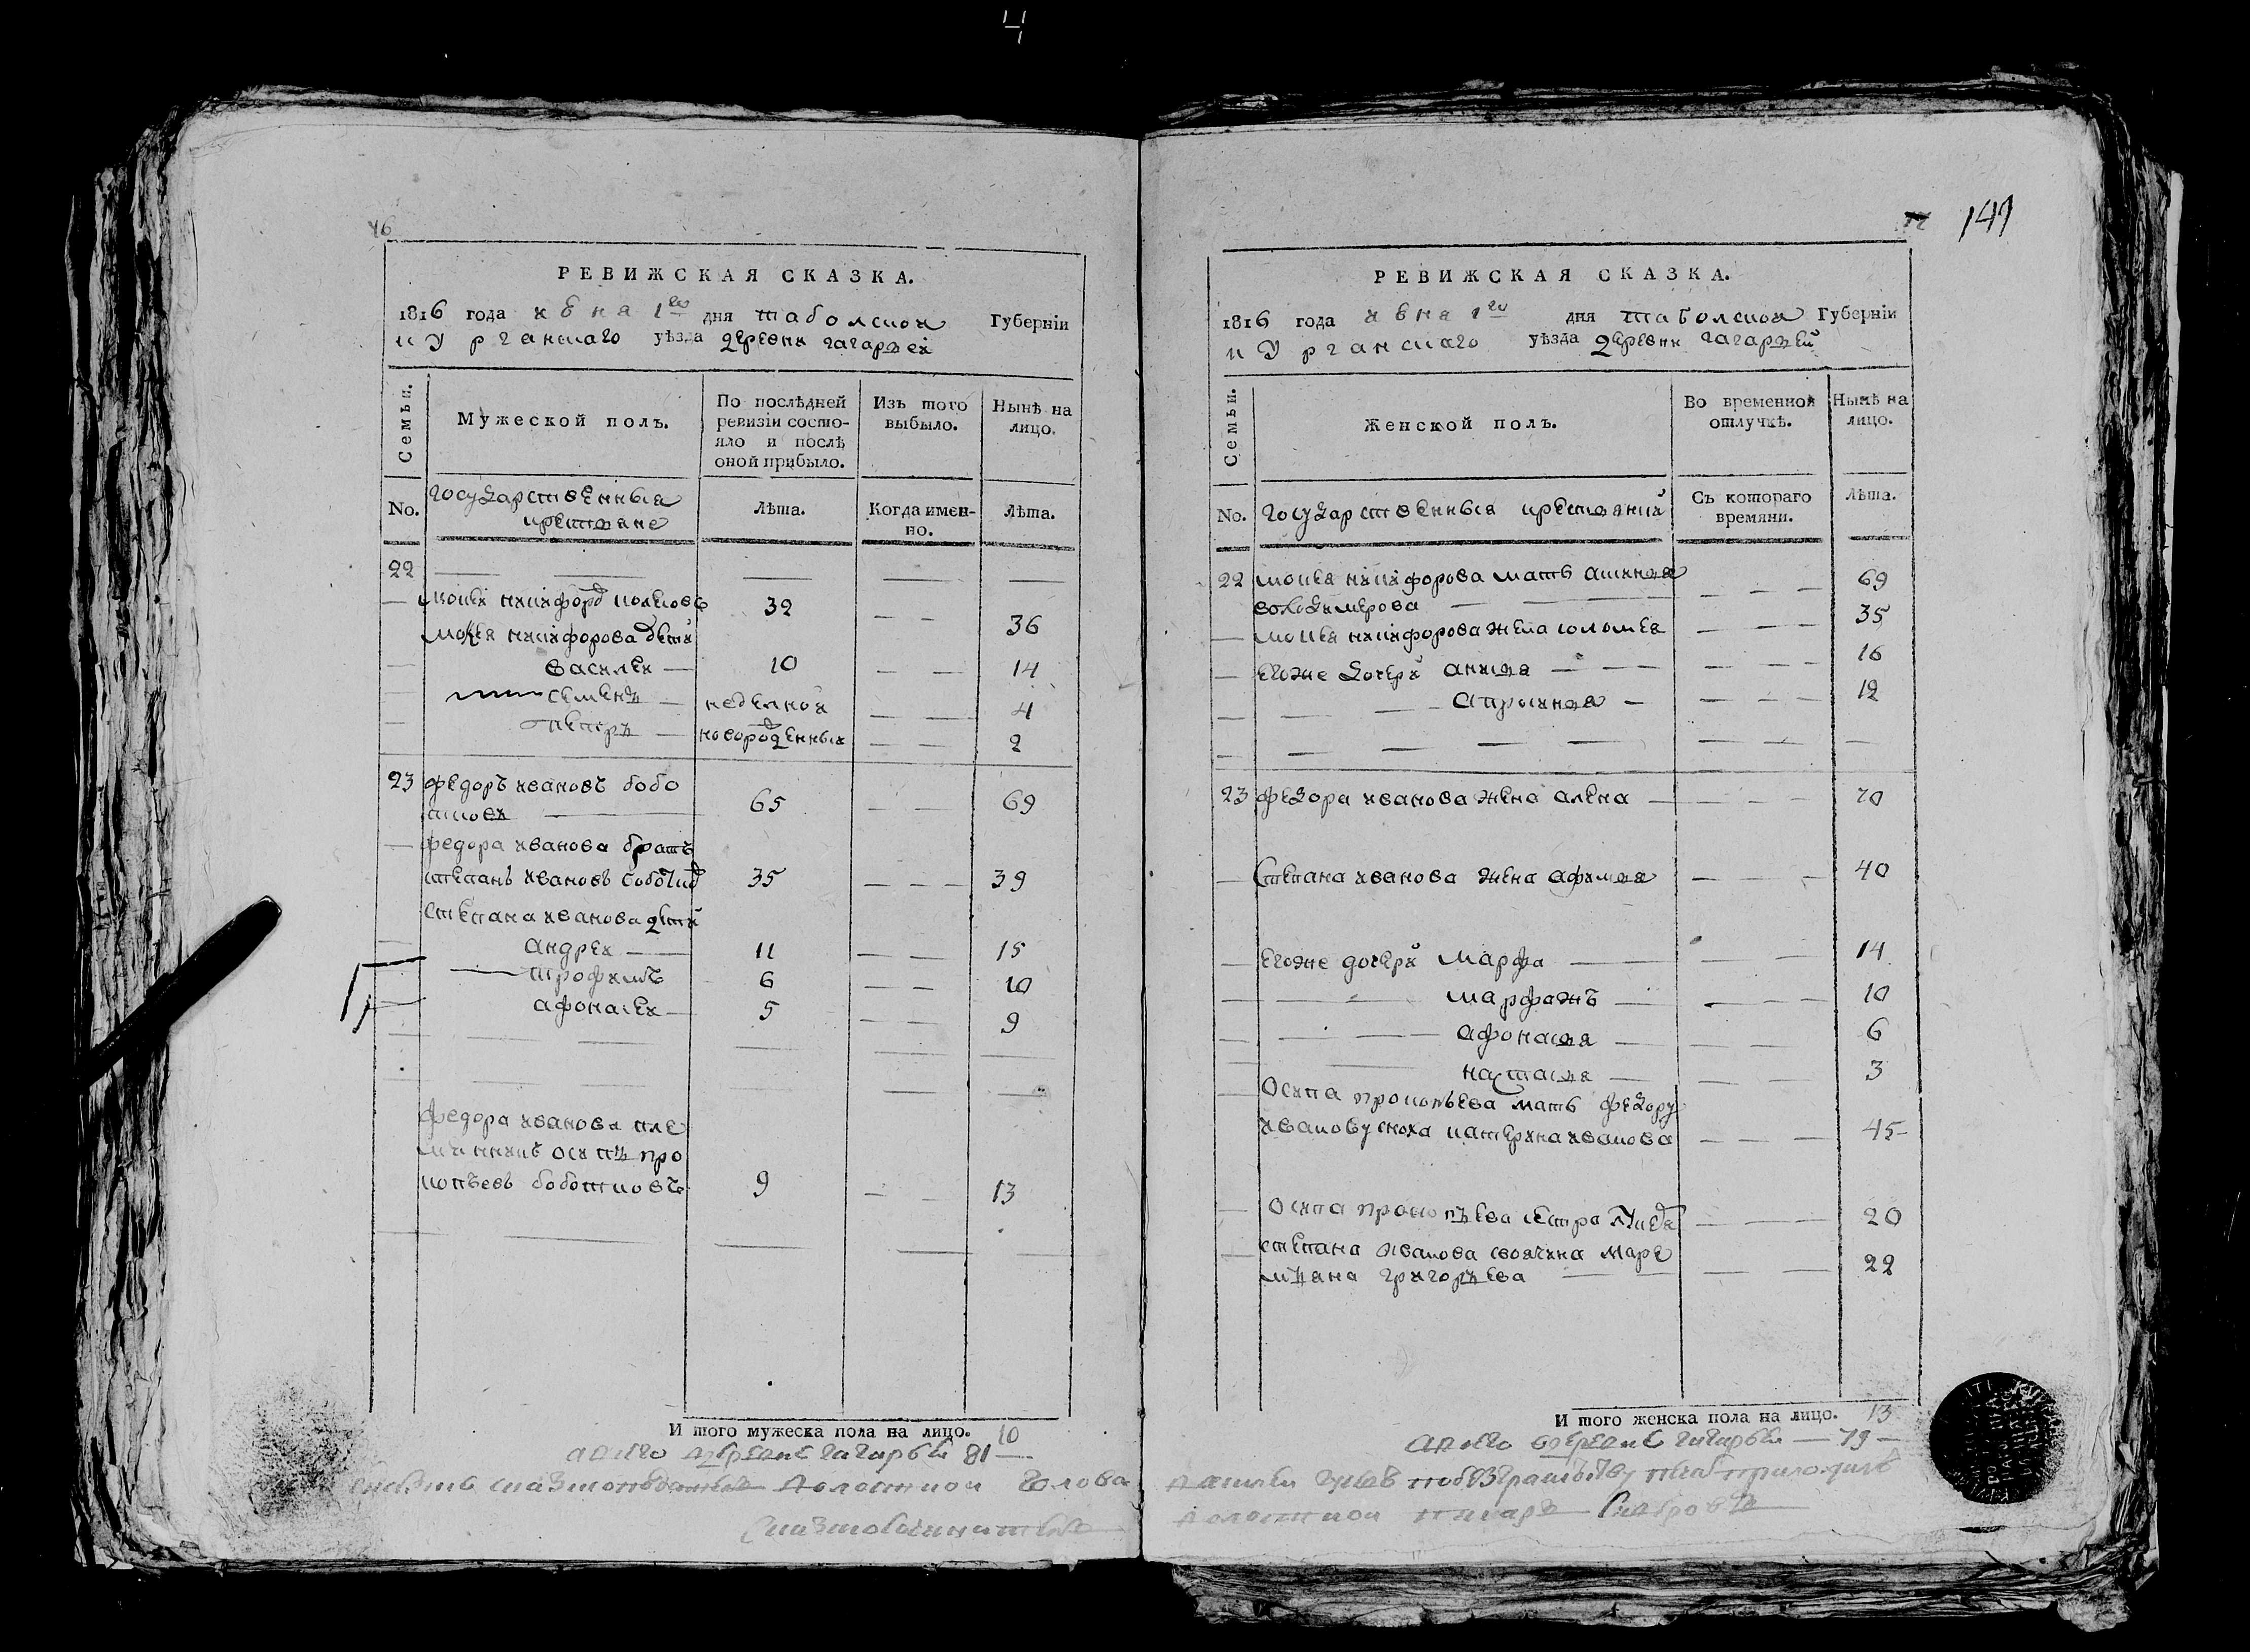 Ч
46
РЕВИЖСКАЯ СКАЗКА.
1816 года июня 1го дня таболской Губерніи
курганскаго уѣзда деревни гагарьей
Семьи.
Мужеской полъ.
По послѣдней ревизіи состояло и послѣ оной прибыло.
Изъ того выбыло.
Нынѣ на лицо.
No.
государственныя
крестьяне
Лѣта.
Когда именно.
Лѣта.
22
мокей никифоров 32 36
мокея никифорова дети
василей 10 14
семенъ неделной 4
петръ новорожденный 2
23 федоръ ивановъ бобо
65 69
федора иванова братъ
степанъ ивановъ 35 39
степана иванова дети
андрей 11 15
трофимъ 6 10
афонасей 5 9
федора иванова пле
мянникъ осипъ про
копьевъ 9 13
И того мужеска пола на лицо. 10
а всего деревне гагарье 81
волостной голова
147
РЕВИЖСКАЯ СКАЗКА.
1816 года июня 1го дня таболской Губерніи
курганскаго уѣзда деревни гагарьей
Семьи.
Женской полъ.
Во временной отлучкѣ.
Нынѣ на лицо.
No.
государственныя крестьянки
Съ котораго времяни.
Лѣта.
22 мокея никифорова мать акинья 69
володимерова
мокея никифорова жена соломея 35
егоже дочери анисья 16
апросинья 12
23 федора иванова жена алена 70
степана иванова жена афимья 40
егоже дочери марфа 14
марфажъ 10
афонасья 6
настасья 3
осипа прокопьева мать федору
иванову сноха катерина иванова 45
осипа прокопьева сестра 20
степана иванова своячина маре
мьяна григорьева 22
И того женска пола на лицо. 13
а всего деревне гагарье 79
приложилъ
волостной писарь